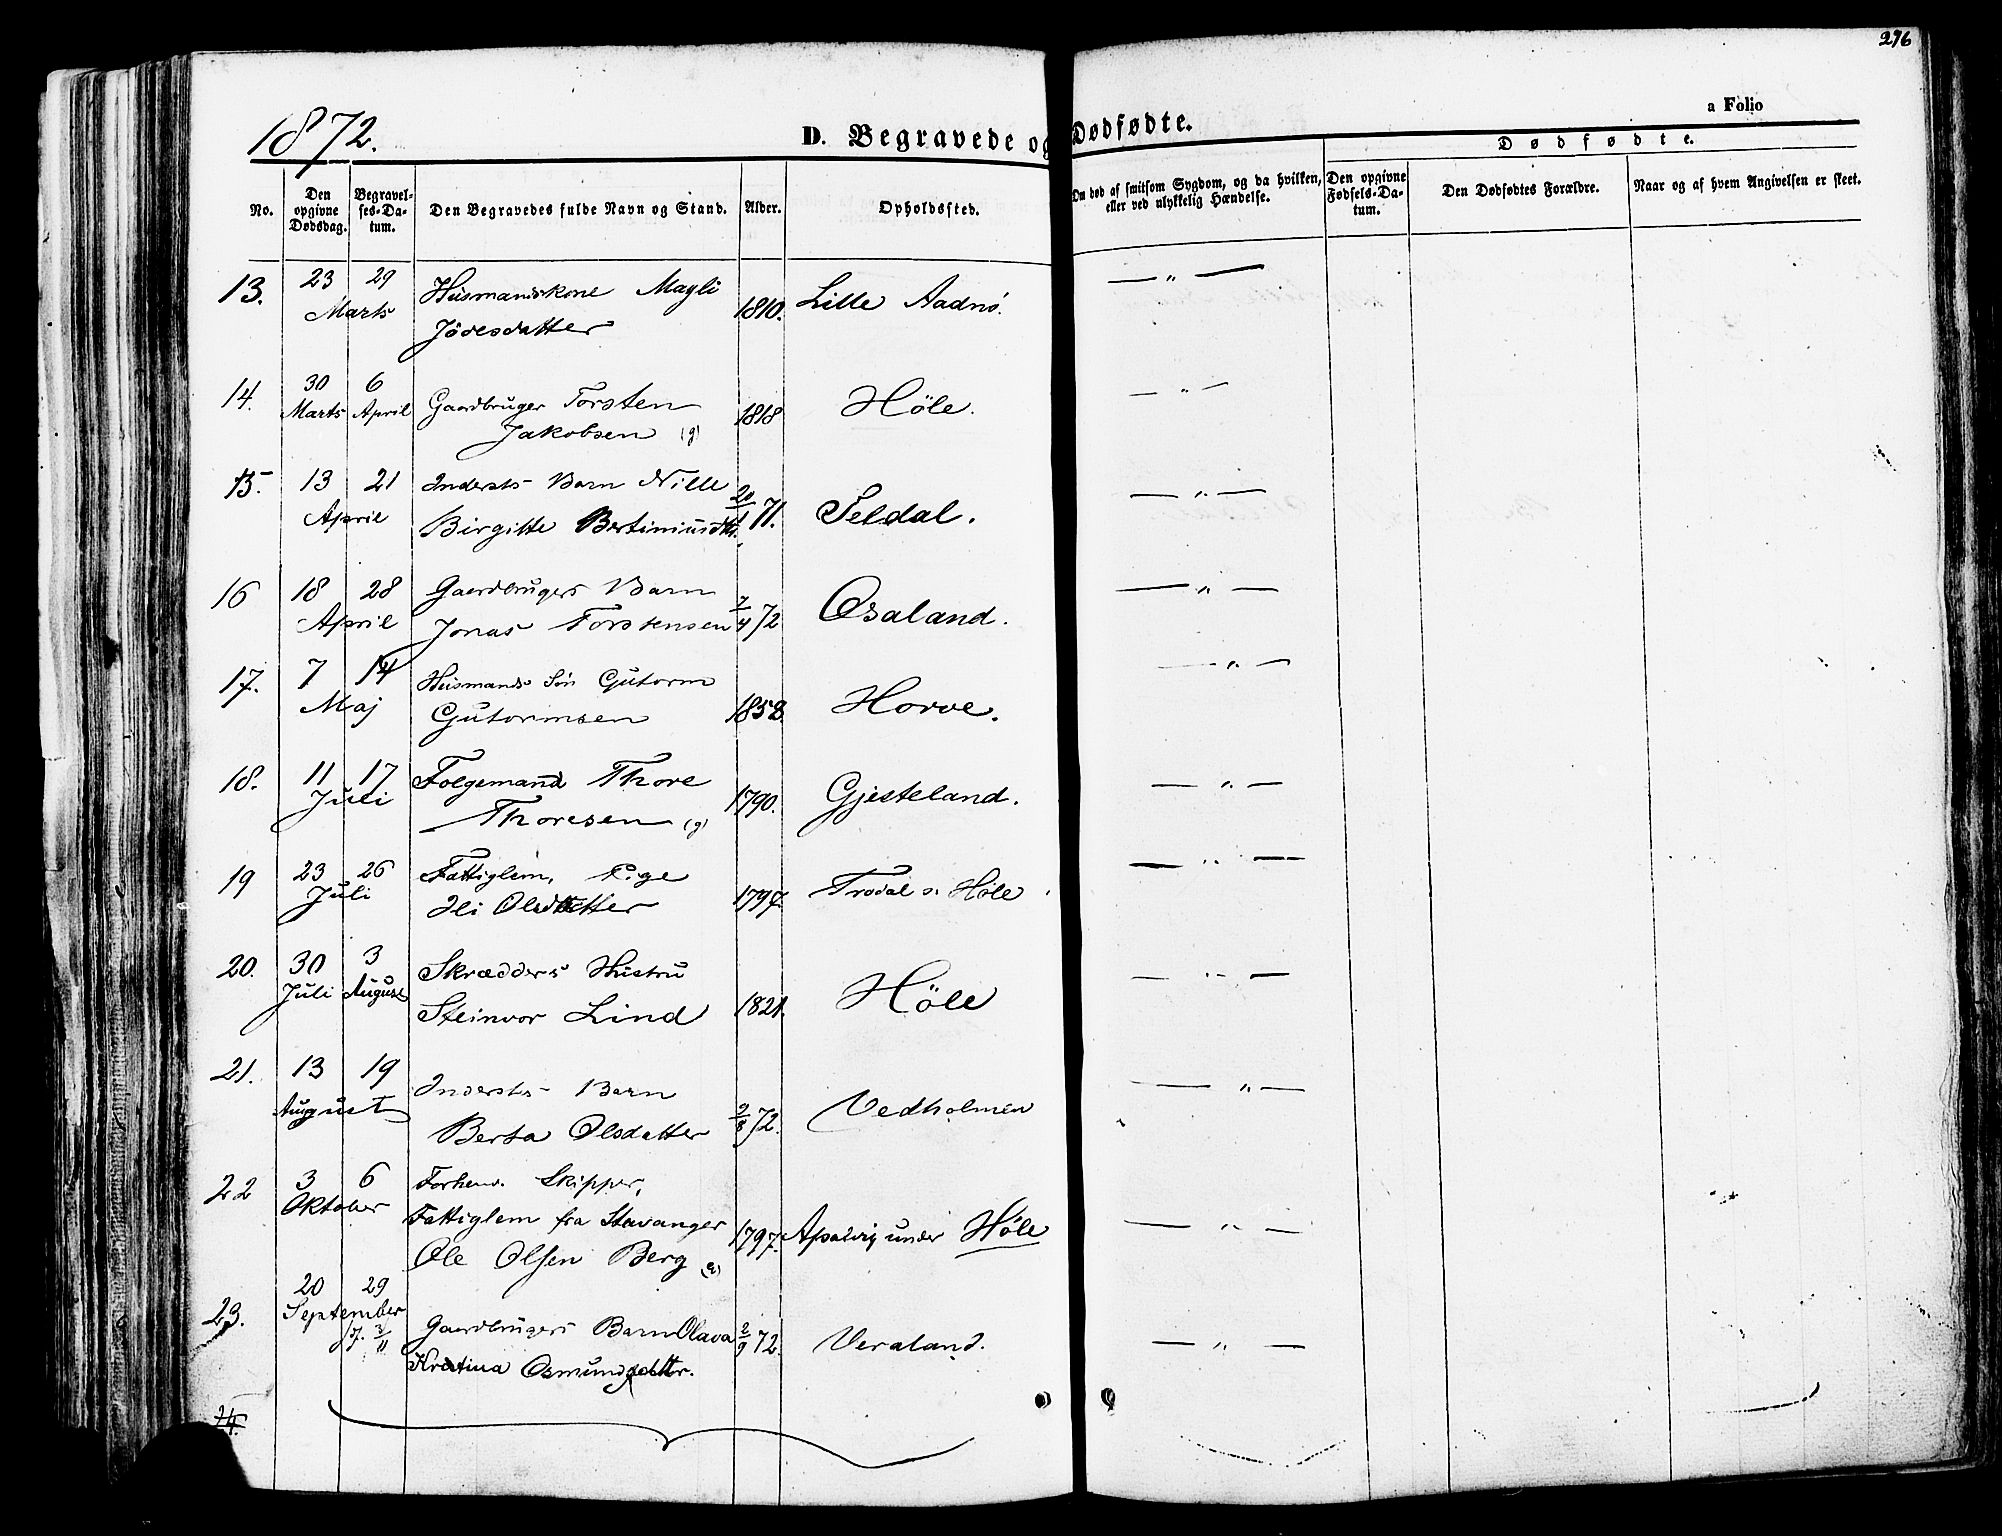 276
a Folio
1872.
D. Begravede og Dødfødte.
Dødfødte.
No.
Den opgivne Dødsdag.
Begravelses-Datum.
Den Begravedes fulde Navn og Stand.
Alder.
Opholdssted.
Om død af smitsom Sygdom, og da hvilken,
eller ved ulykkelig Hændelse.
Den opgivne Fødsels-Datum.
Den Dødfødtes Forældre.
Naar og af hvem Angivelsen er skeet.
13. 23 29 Husmandskone Magli
Marts Jödesdatter 1810. Lille Aadnö. — " —
14. 30 6 Gaardbruger Torsten
Marts April Jakobsen (g) 1818 Höle. — " —
15. 13 21 Indersts Barn Nille
April Birgitte 20/1 71. Seldal. — " —
16 18 28 Gaardbrugers Barn
April Jonas Torstensen 7/4 72 Osaland. — " —
17. 7 14 Husmands Sön Gutorm
Maj Gutormsen 1858 Horve. — " —
18. 11 17 Folgemand Thore
Juli Thoresen (g) 1790. Gjesteland. — " —
19 23 26 Fattiglem, Pige
Juli Ili Olsdatter 1797. Trodal Höle — " —
20. 30 3 Skrædders Hustru
Juli August Steinvor Lind 1821. Höle — " —
21. 13 19 Inderstes Barn
August Berta Olsdatter 9/8 72. Vedholmen — " —
22 3 6 Forhenv. Skipper,
Oktober Fattiglem fra Stavanger
Ole Olsen Berg 1797. Apalvig under Höle — " —
23. 20 29
September
J. 3/11 Gaardbrugers Barn Olava 2/9 72. Veraland. — " —
Kristina Osmundsdatter.
24.